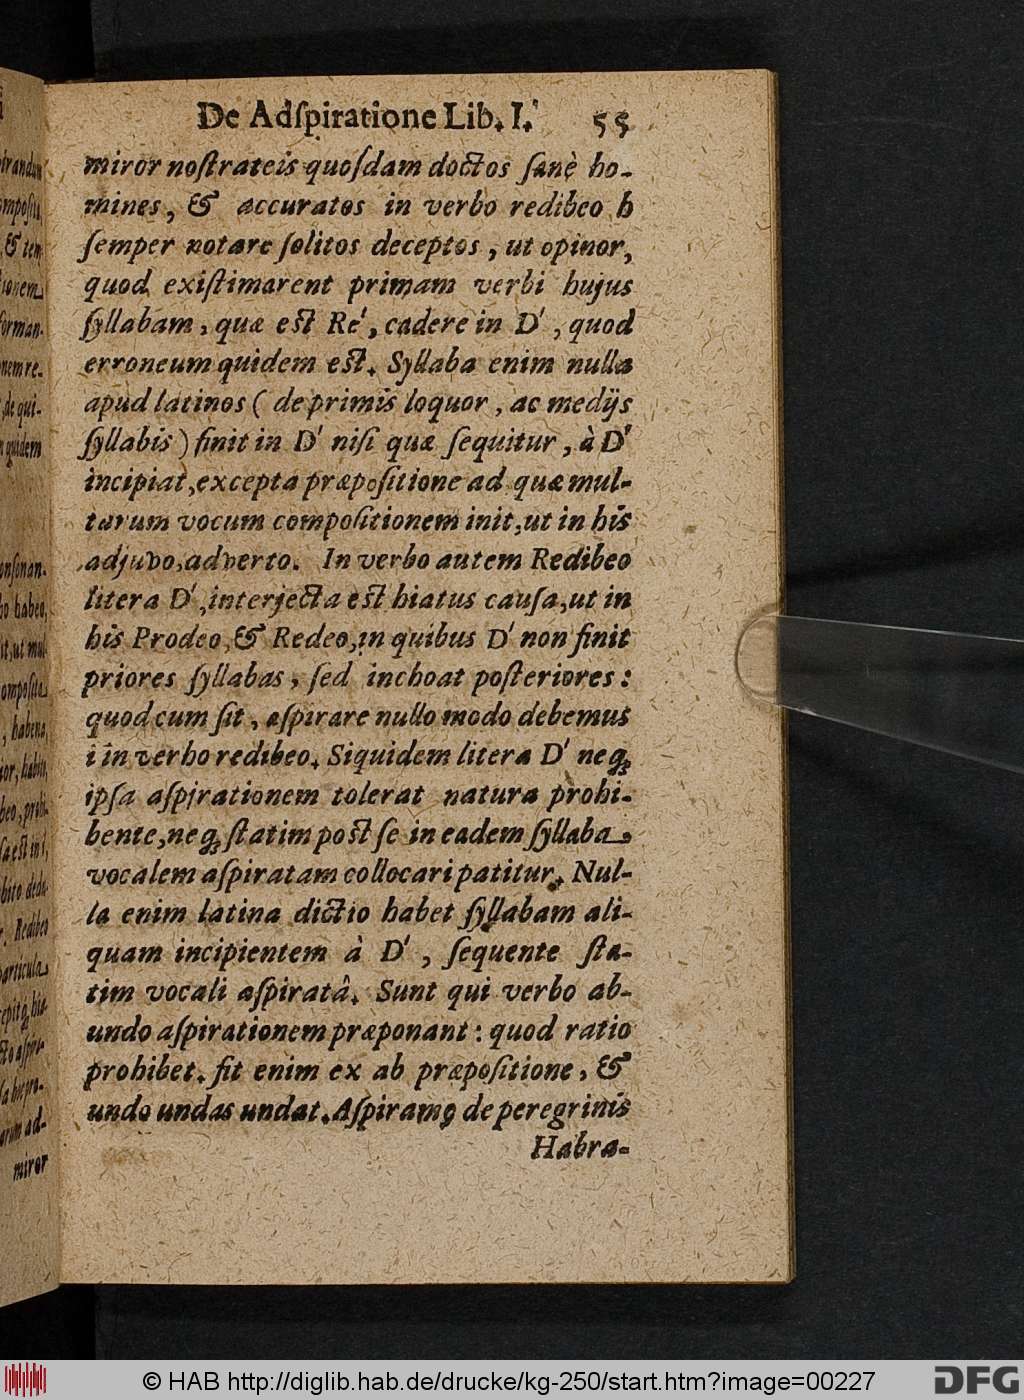 De Adſpiratione Lib. I. 55
miror noſtrateis quoſdam doctos ſanè ho-
mines, & accuratos in verbo redibeo h
ſemper notare ſolitos deceptos, ut opinor,
quod exiſtimarent primam verbi hujus
ſyllabam, quæ eſt Re', cadere in D', quod
erroneum quidem eſt. Syllaba enim nulla
apud latinos (de primis loquor, ac medijs
ſyllabis) finit in D' niſi quæ ſequitur, à D'
incipiat, excepta præpoſitione ad quæ mul-
tarum vocum compoſitionem init, ut in his
adjuvo, adverto. In verbo autem Redibeo
litera D', interjecta eſt hiatus cauſa, ut in
his Prodeo, & Redeo, in quibus D' non finit
priores ſyllabas, ſed inchoat poſteriores:
quod cum ſit, aſpirare nullo modo debemus
i in verbo redibeo. Siquidem litera D' neq;
ipſa aſpirationem tolerat natura prohi-
bente, neq; ſtatim poſt ſe in eadem ſyllaba
vocalem aſpiratam collocari patitur. Nul-
la enim latina dictio habet ſyllabam ali-
quam incipientem à D', ſequente ſta-
tim vocali aſpiratâ. Sunt qui verbo ab-
undo aſpirationem præponant: quod ratio
prohibet. fit enim ex ab præpoſitione, &
undo undas undat. Aſpiramꝰ de peregrinis
Habra-
miror
© HAB http://diglib.hab.de/drucke/kg-250/start.htm?image=00227
DFG